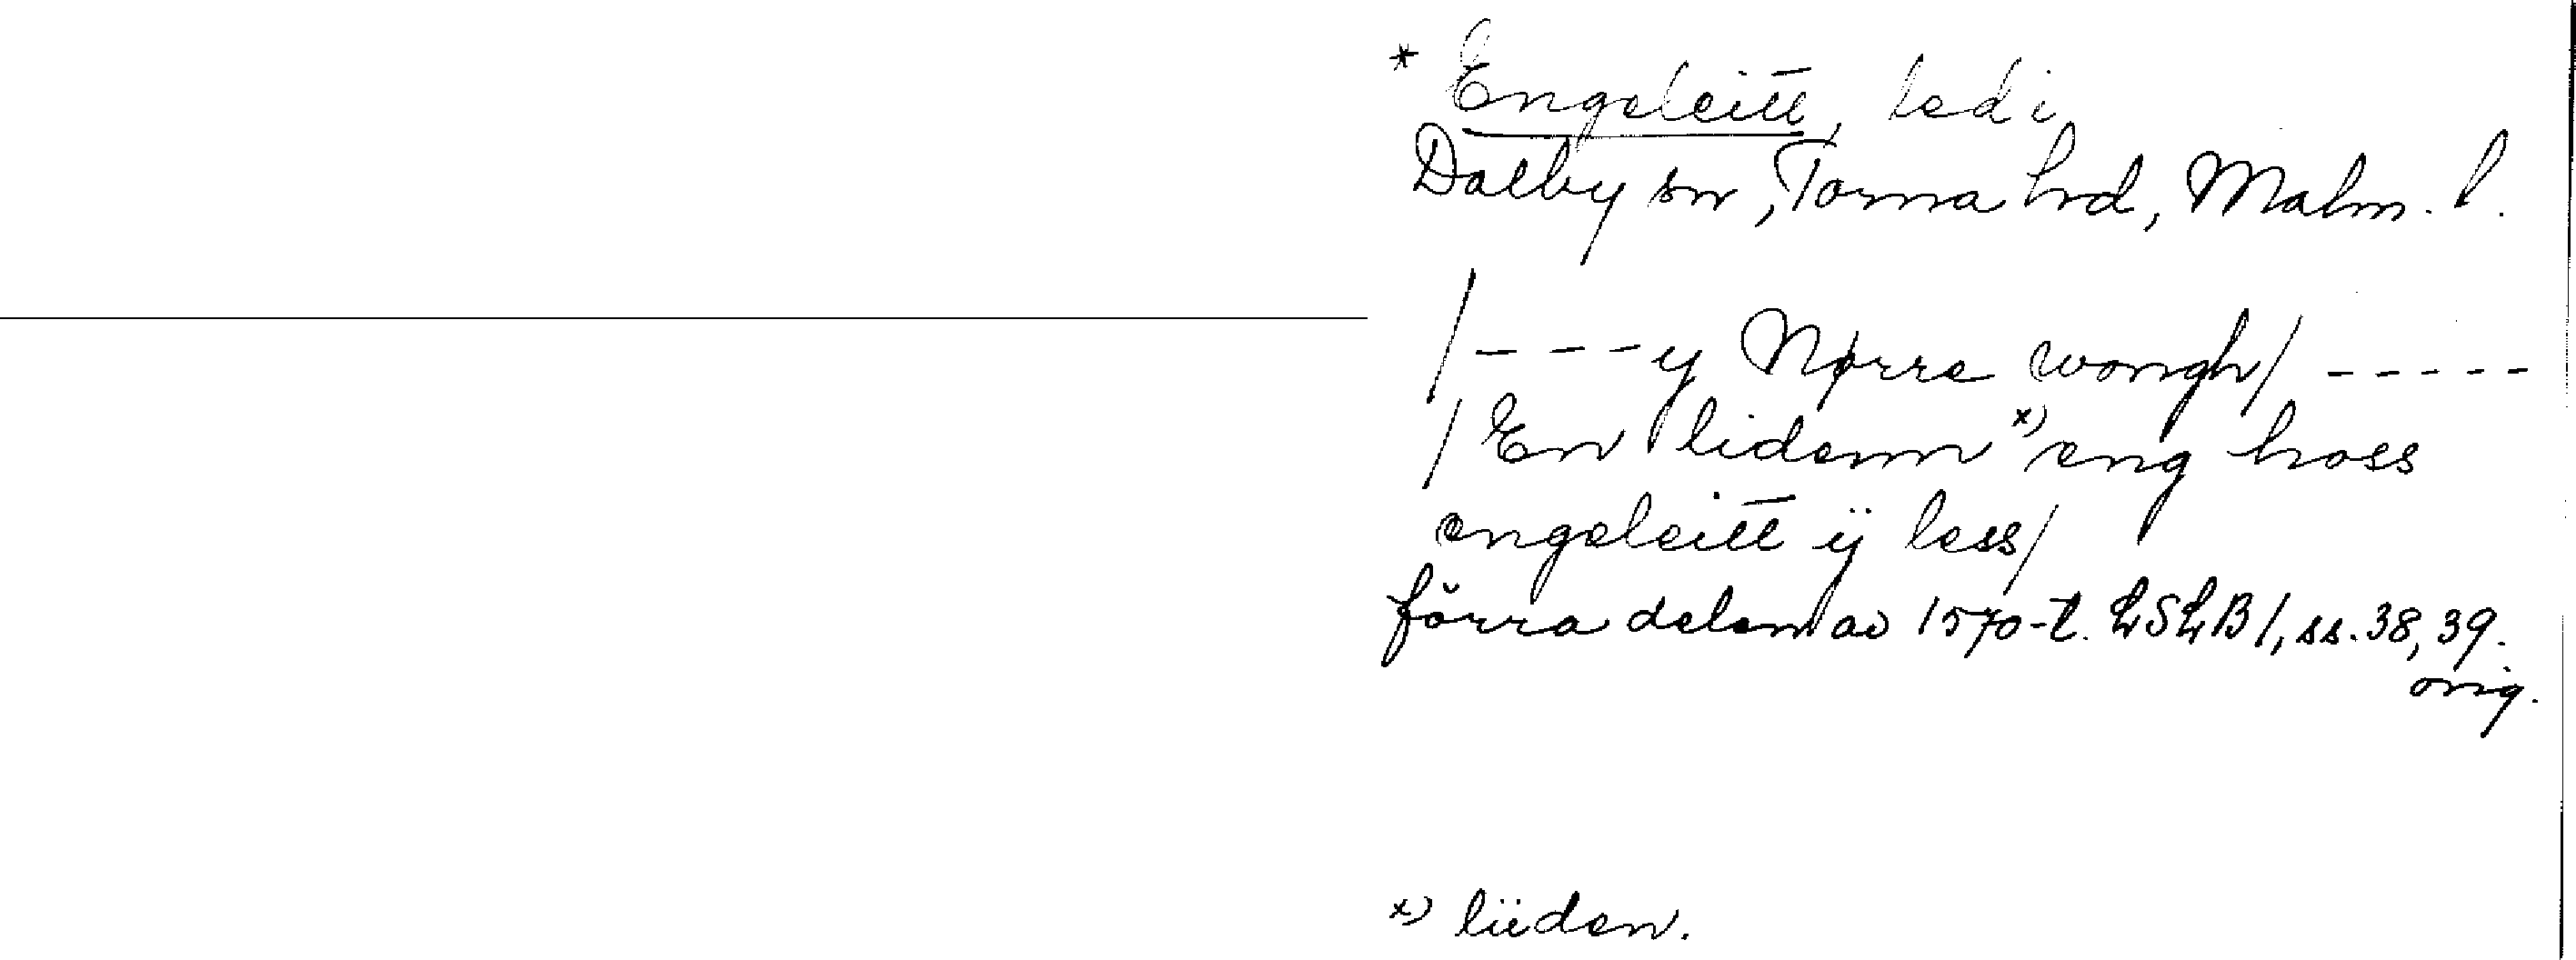 * Engeleitt, led i
Dalby sn, Torna hrd, Malm. l.
/ - - - y Nørre wongh / - - - - -
/ En lidenn x) eng hoss
engeleitt ÿ less /
förra delen av 1570-t. LSLB 1, ss. 38, 39.
orig.
x) liiden.